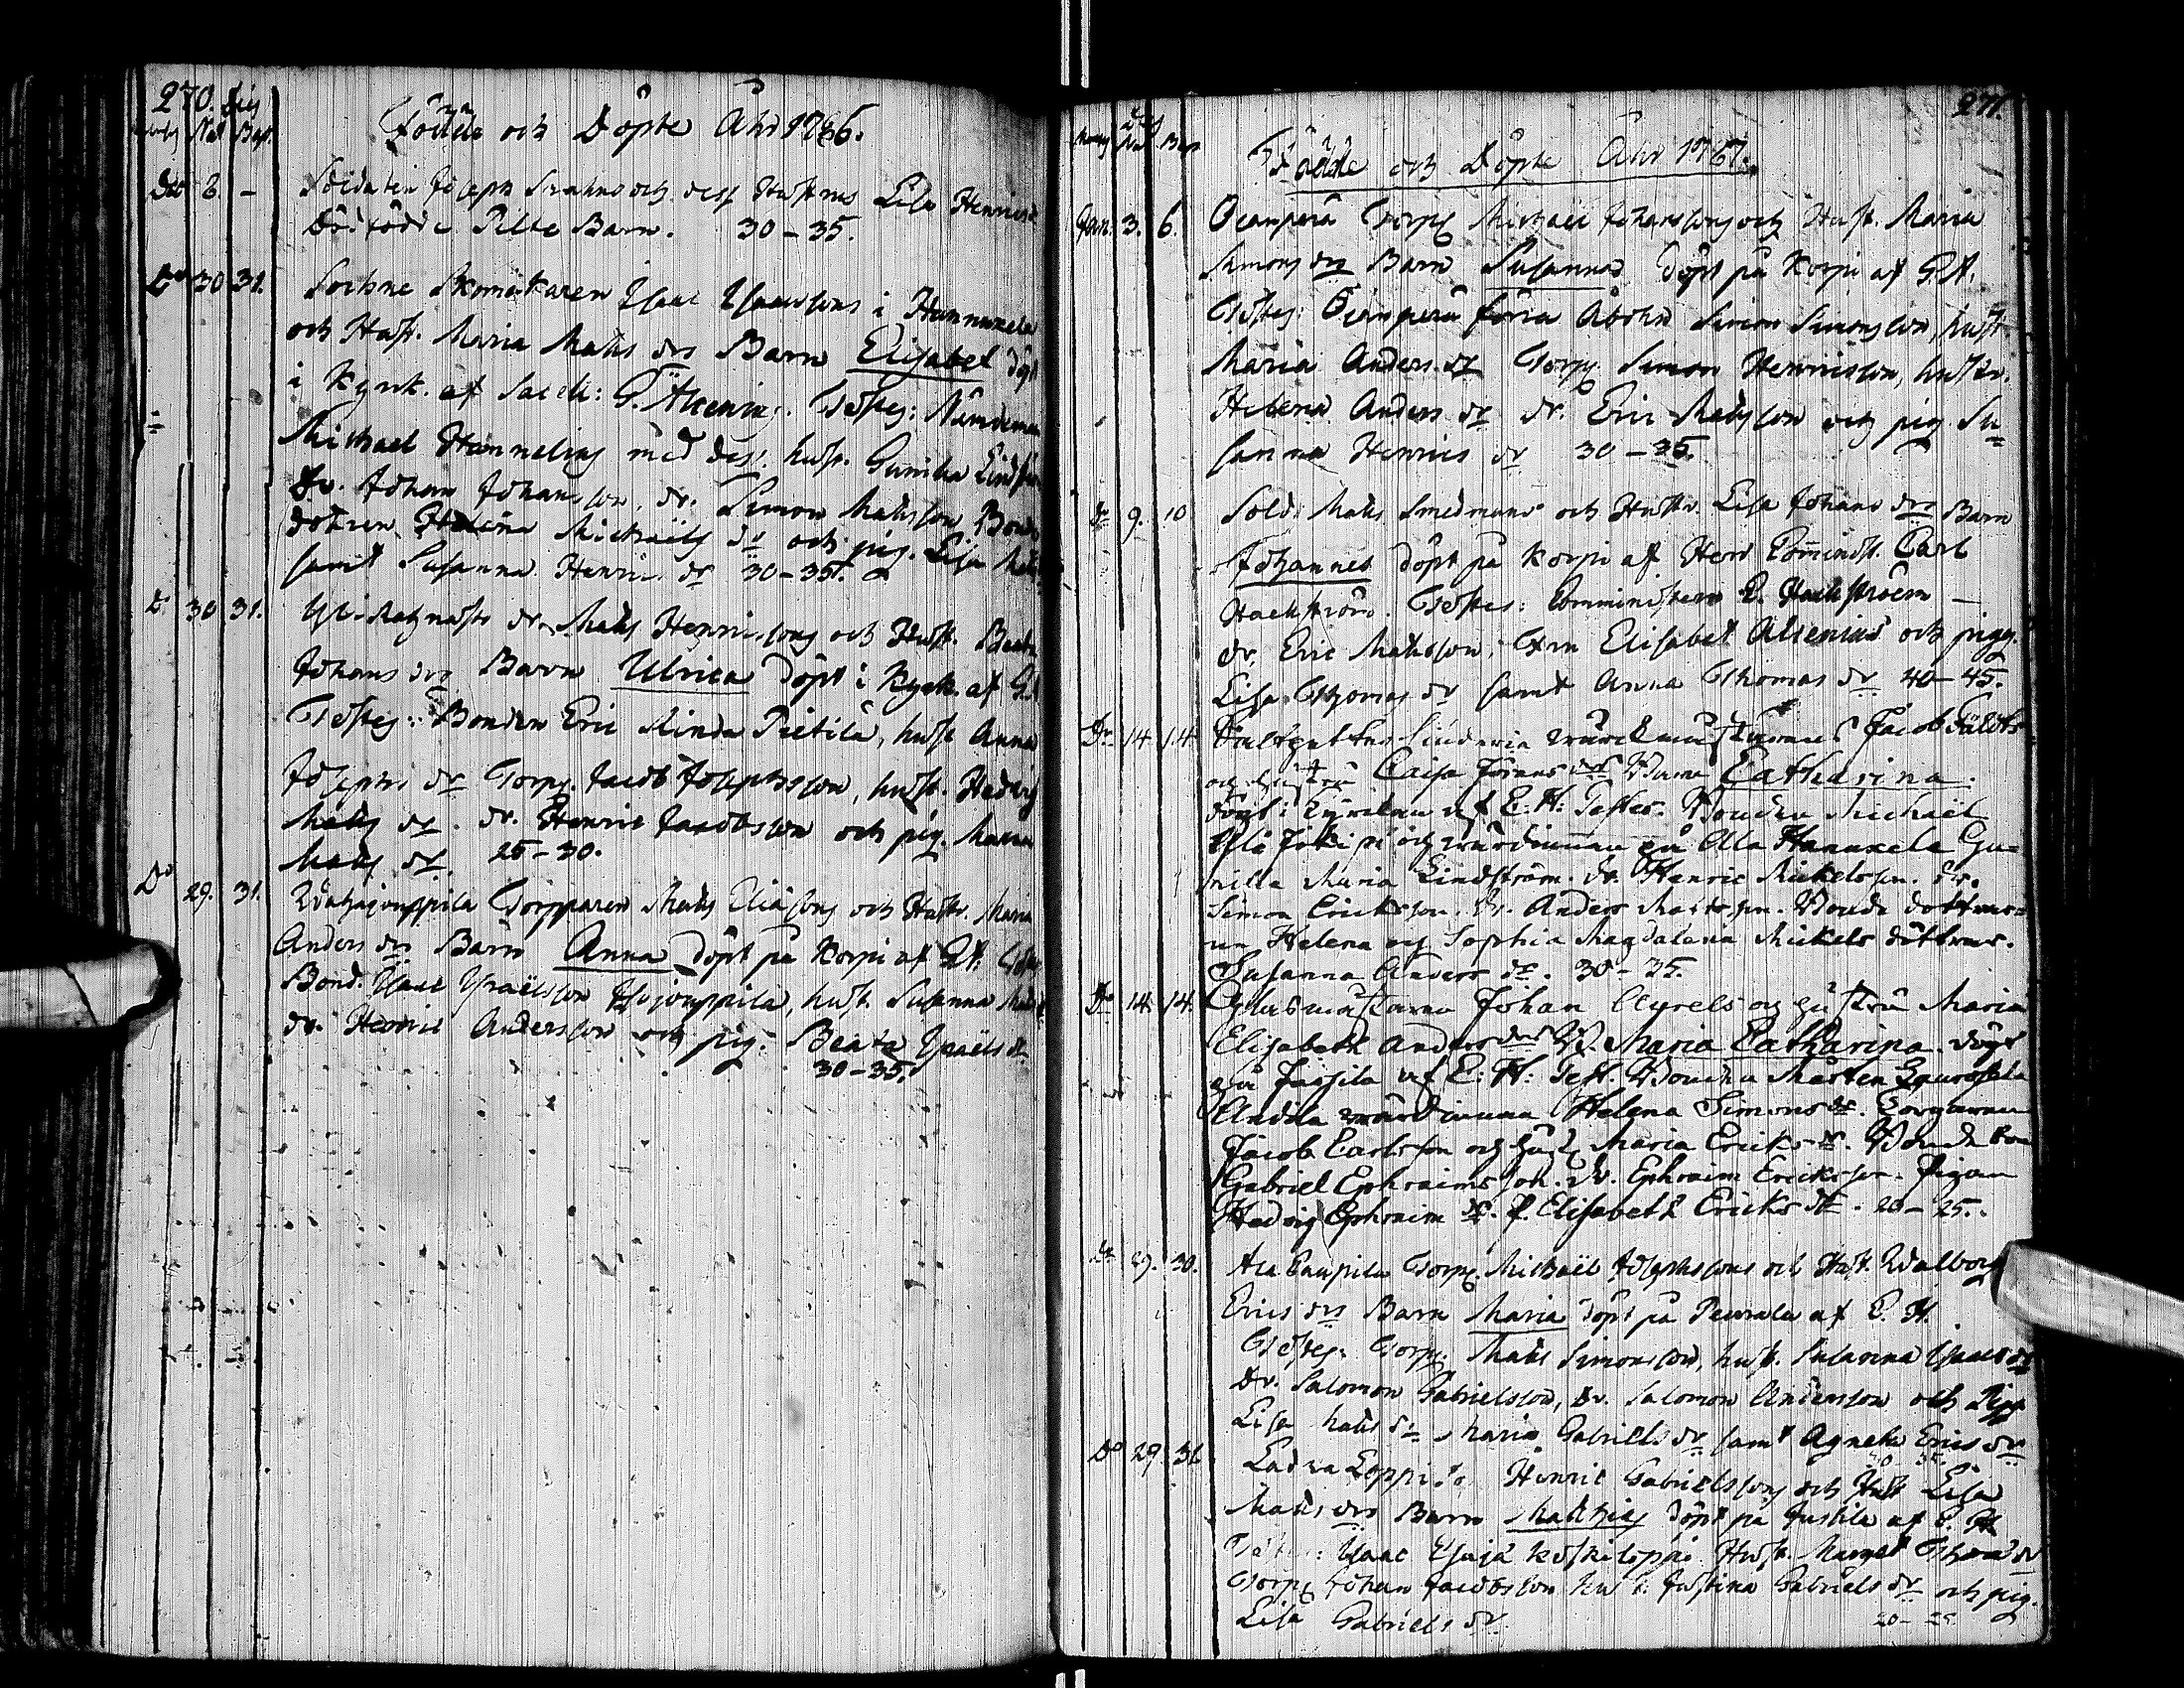 270. Dies
Nat Bapt.
Födde och Döpte Åhr 1766.
Do 6. - Soldaten Joseph och dess Hustrus Lisa Henrics
Dödfödde Pilte Barn. 30-35.
Do 30 31. Sochne Skomakaren Isaac Isaacsons i Hannuxela
och Hust. Maria Mats drs Barn Elisabet döpt
i Kyrk. af Sacell: G. Testes: Nämdeman
Michael Hanneling med dess hust. Gunilla Lindström
dr. Johan Johansson, dr. Simon Matsson, Bonde
dottren Helena Michaels dr och pig. Lisa Mats
samt Susanna Henrics dr 30-35.
Do 30 31. dr. Mats Henricsons och Hust. Beata
Johans drs Barn Ulrica döpt i Kyrk. af G.
Testes: Bonden Eric Rinda Pietilä, hust Anna
Josephs dr Torp. Jacob Josephsson, hust. Hedvig
Mats dr. dr. Henric Jacobsson och pig. Maria
Mats dr. 25-30.
Do 29. 31. Torpparen Mats Eliasons och Hustr. Maria
Anders drs Barn Anna döpt på Korpi af G.A. Testes
Bond. Isaac Israelsson, hust. Susanna Mats
dr. Henric Andersson och pig. Beata Israels dr
30-35.
271.
Dies
Nat Bapt
Födde och Döpte Åhr 1767.
Jan. 3. 6. Torp Michael Johanssons och Hust. Maria
Simons drs Barn Susanna döpt på Korpi af G.A.
Testes: förra Åboen Simon Simonsson, hust
Maria Anders dr Torp Simon Henricsson, hustr.
Helena Anders dr dr. Eric Matsson och pig Su=
sanna Henrics dr 30-35.
Do 9. 10 Sold. Mats Smedmans och Hustr. Lisa Johans drs Barn
Johannes döpt på Korpi af Herr Comminist. Carl
Hackström. Testes: Comministern C. Hackström -
dr. Eric Matsson, Elisabet Alcenius och pigg.
Lisa Thomas dr samt Anna Thomas dr 40-45.
Do 14. 14. Jacob
och hustru Caisa Jörans drs Barn Catharina.
döpt i Kyrckan af E. H: Testes. Bonden Michaël
och värdinnan på Olla Hannuxela Gu=
nilla Maria Lindström. dr. Henric Mickelsson. dr.
Simon Ericksson. dr. Anders Mattsson. Bonde döttrar=
na Helena och Sophia Magdalena Mickels döttrar.
Susanna Anders dr. 30-35.
Do 14. 14. Glasmästaren Johan och hustru Maria
Elisabeth Anders drs B. Maria Catharina. döpt
på Jussila af E. H: Test. Bonden Mårten
Andila värdinnan Helena Simons dr. Torparen
Jacob Carlsson och hust Maria Ericks dr. Bonde
Gabriel Ephraimsson. dr. Ephraim Ericksson. Pigan
Hedvig Ephraim dr. P. Elisabeth Ericks dr. 20-25.
Do 29. 30. Torp. Michaël Josephssons och Hust. Walborg
Erics drs Barn Maria döpt på Peurala af E. H.
Testes: Torp. Mats Simonsson, hust. Susanna Isaacs dr
dr. Salomon Gabrielsson, dr. Salomon Andersson och Pig.
Lisa Mats dr Maria Gabriels dr samt Agneta Erics dr
Do 29. 31. Henric Gabrielssons och Hust Lisa
Mats drs Barn Matthias döpt på Jussila af E. H
Testes: Isaac Hust. Marget
Torp. Johan Jacobsson hust: Justina Gabriels dr och pig.
Lisa Gabriels dr. 20-25